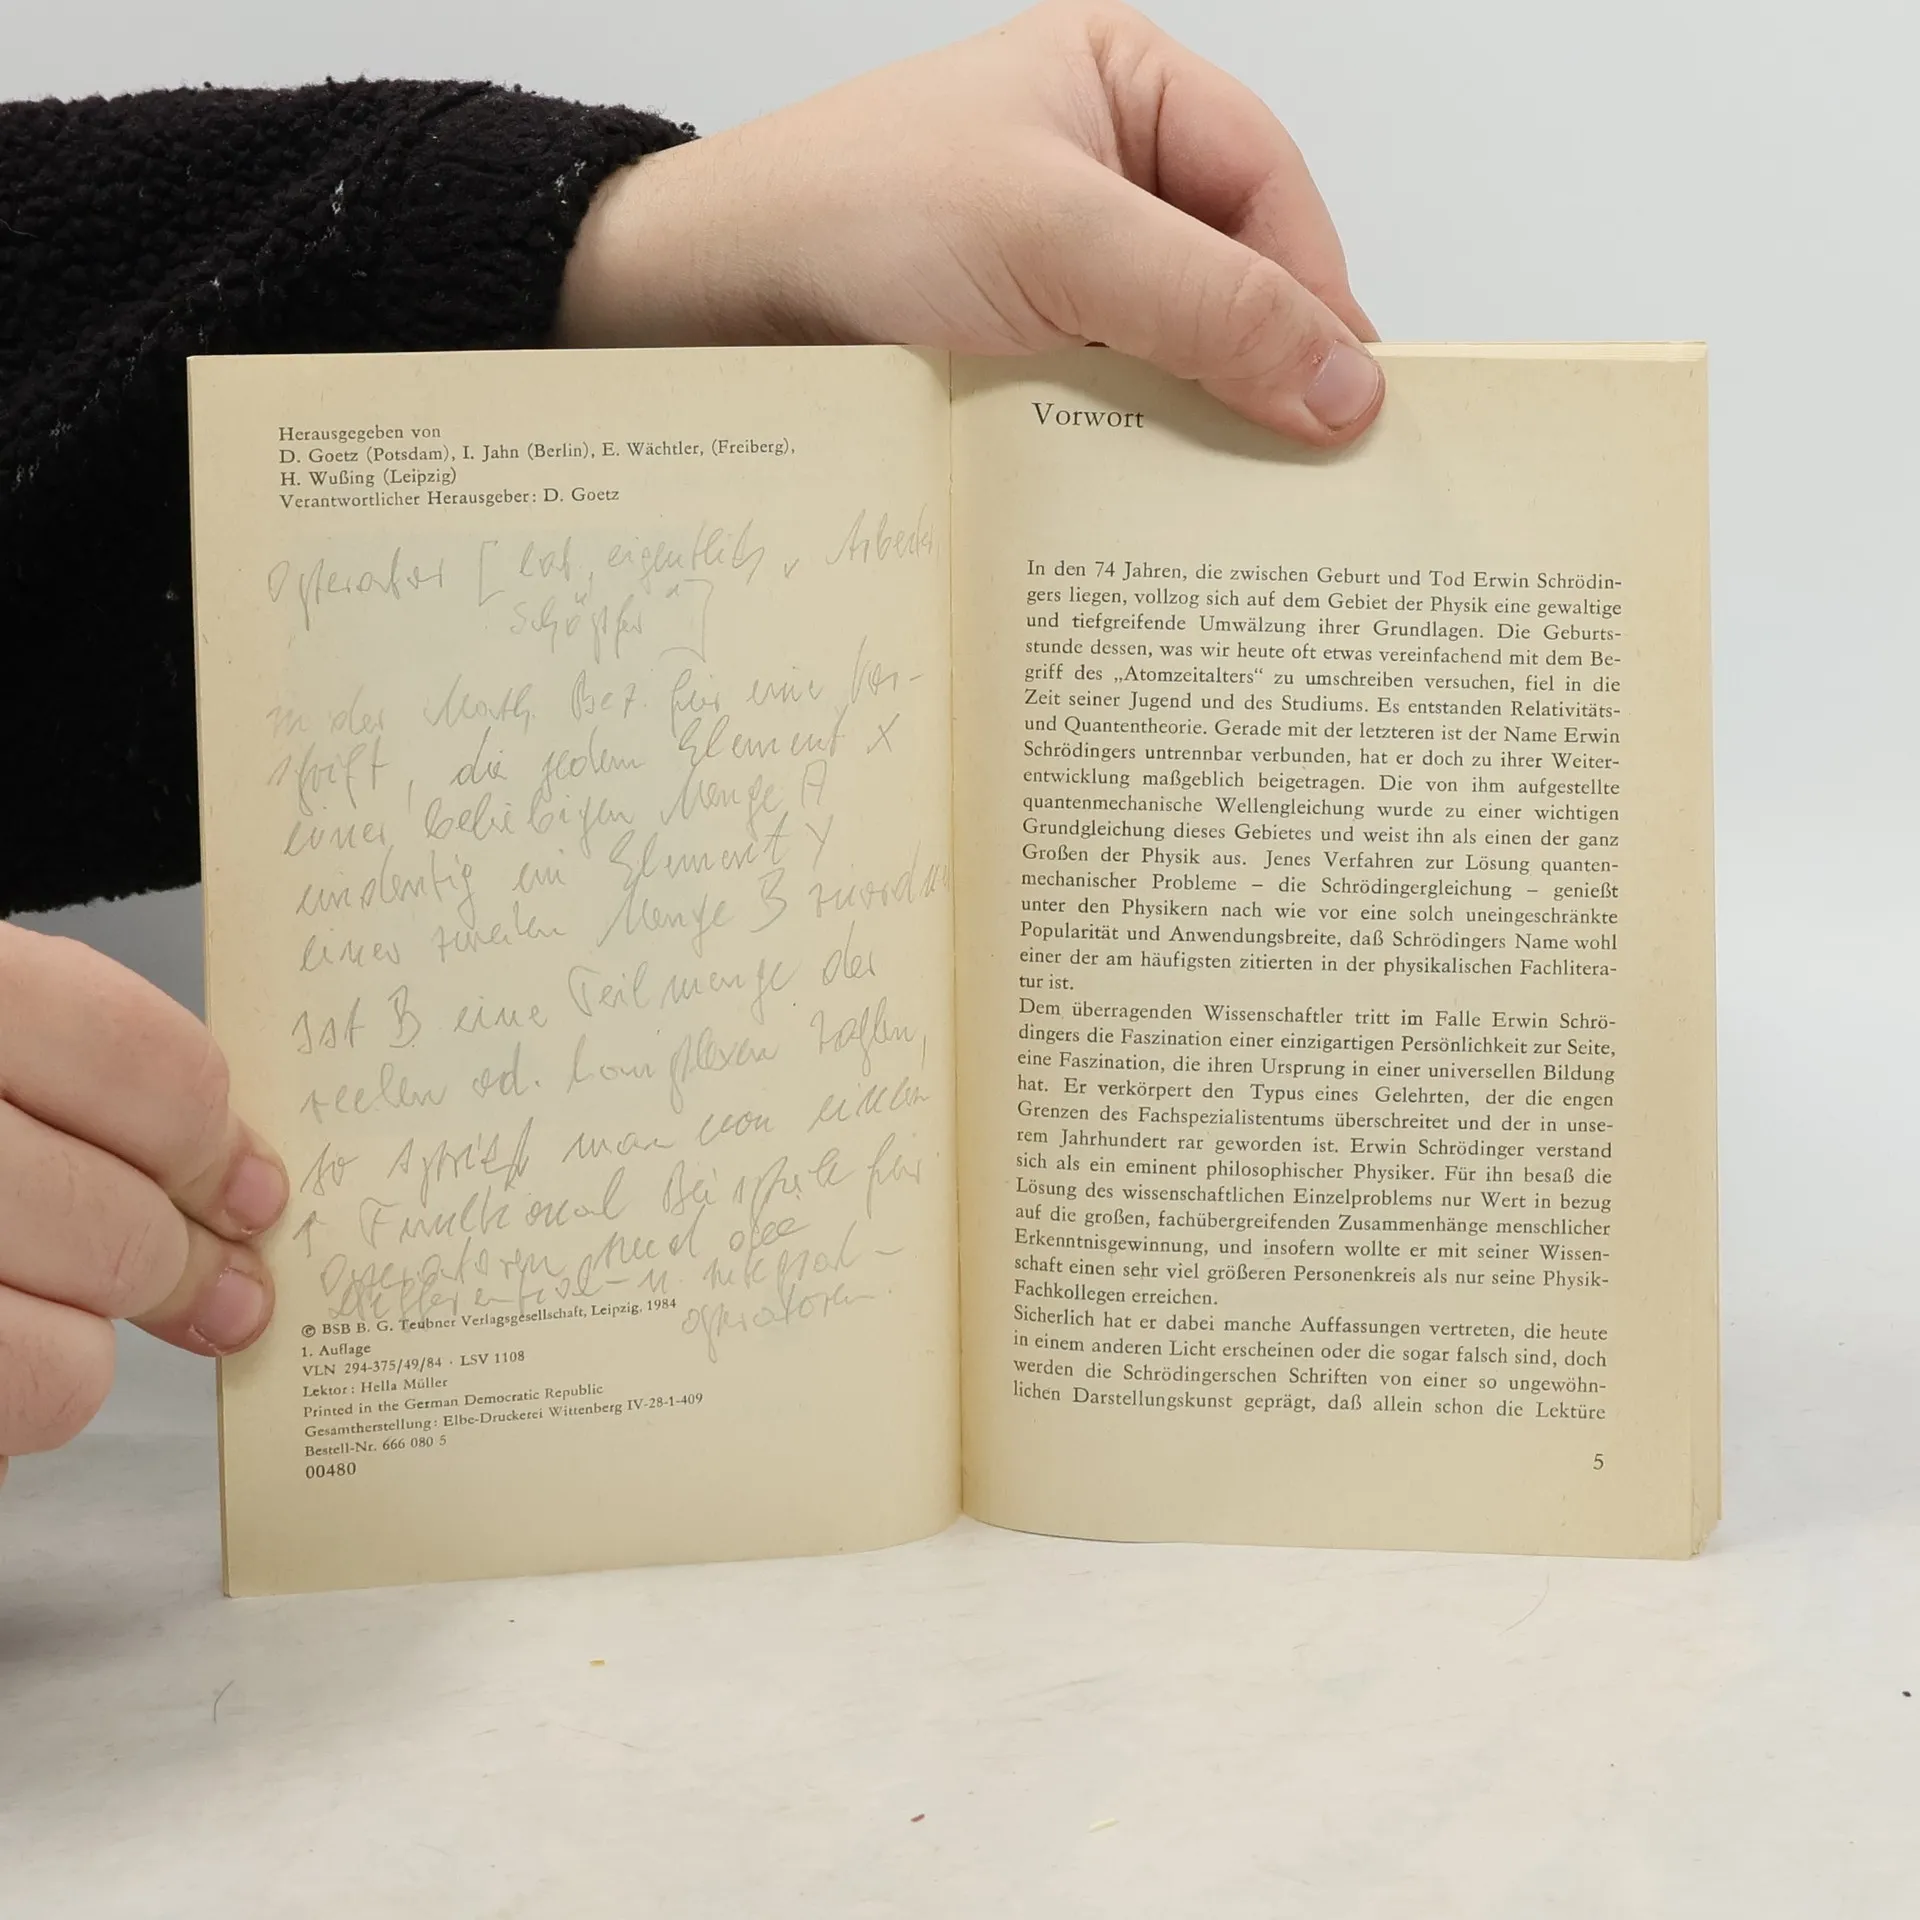 Herausgegeben von
D. Goetz (Potsdam), I. Jahn (Berlin), E. Wächtler, (Freiberg),
H. Wußing (Leipzig)
Verantwortlicher Herausgeber: D. Goetz
Operator [lat, eigentlich „Arbeiter,
Schöpfer"]
in der Math. Bez. für eine Vor-
schrift, die jedem Element X
einer beliebigen Menge A
eindeutig ein Element Y
einer zweiten Menge B
Ist B eine Teilmenge der
reellen od. komplexen Zahlen,
so spricht man von einem
↑ Funktional Beispiele für
Operatoren sind die
Differential- u. Integral-
operatoren.
© BSB B. G. Teubner Verlagsgesellschaft, Leipzig, 1984
1. Auflage
VLN 294-375/49/84 · LSV 1108
Lektor: Hella Müller
Printed in the German Democratic Republic
Gesamtherstellung: Elbe-Druckerei Wittenberg IV-28-1-409
Bestell-Nr. 666 080 5
00480
Vorwort
In den 74 Jahren, die zwischen Geburt und Tod Erwin Schrödin-
gers liegen, vollzog sich auf dem Gebiet der Physik eine gewaltige
und tiefgreifende Umwälzung ihrer Grundlagen. Die Geburts-
stunde dessen, was wir heute oft etwas vereinfachend mit dem Be-
griff des „Atomzeitalters“ zu umschreiben versuchen, fiel in die
Zeit seiner Jugend und des Studiums. Es entstanden Relativitäts-
und Quantentheorie. Gerade mit der letzteren ist der Name Erwin
Schrödingers untrennbar verbunden, hat er doch zu ihrer Weiter-
entwicklung maßgeblich beigetragen. Die von ihm aufgestellte
quantenmechanische Wellengleichung wurde zu einer wichtigen
Grundgleichung dieses Gebietes und weist ihn als einen der ganz
Großen der Physik aus. Jenes Verfahren zur Lösung quanten-
mechanischer Probleme – die Schrödingergleichung – genießt
unter den Physikern nach wie vor eine solch uneingeschränkte
Popularität und Anwendungsbreite, daß Schrödingers Name wohl
einer der am häufigsten zitierten in der physikalischen Fachlitera-
tur ist.
Dem überragenden Wissenschaftler tritt im Falle Erwin Schrö-
dingers die Faszination einer einzigartigen Persönlichkeit zur Seite,
eine Faszination, die ihren Ursprung in einer universellen Bildung
hat. Er verkörpert den Typus eines Gelehrten, der die engen
Grenzen des Fachspezialistentums überschreitet und der in unse-
rem Jahrhundert rar geworden ist. Erwin Schrödinger verstand
sich als ein eminent philosophischer Physiker. Für ihn besaß die
Lösung des wissenschaftlichen Einzelproblems nur Wert in bezug
auf die großen, fachübergreifenden Zusammenhänge menschlicher
Erkenntnisgewinnung, und insofern wollte er mit seiner Wissen-
schaft einen sehr viel größeren Personenkreis als nur seine Physik-
Fachkollegen erreichen.
Sicherlich hat er dabei manche Auffassungen vertreten, die heute
in einem anderen Licht erscheinen oder die sogar falsch sind, doch
werden die Schrödingerschen Schriften von einer so ungewöhn-
lichen Darstellungskunst geprägt, daß allein schon die Lektüre
5